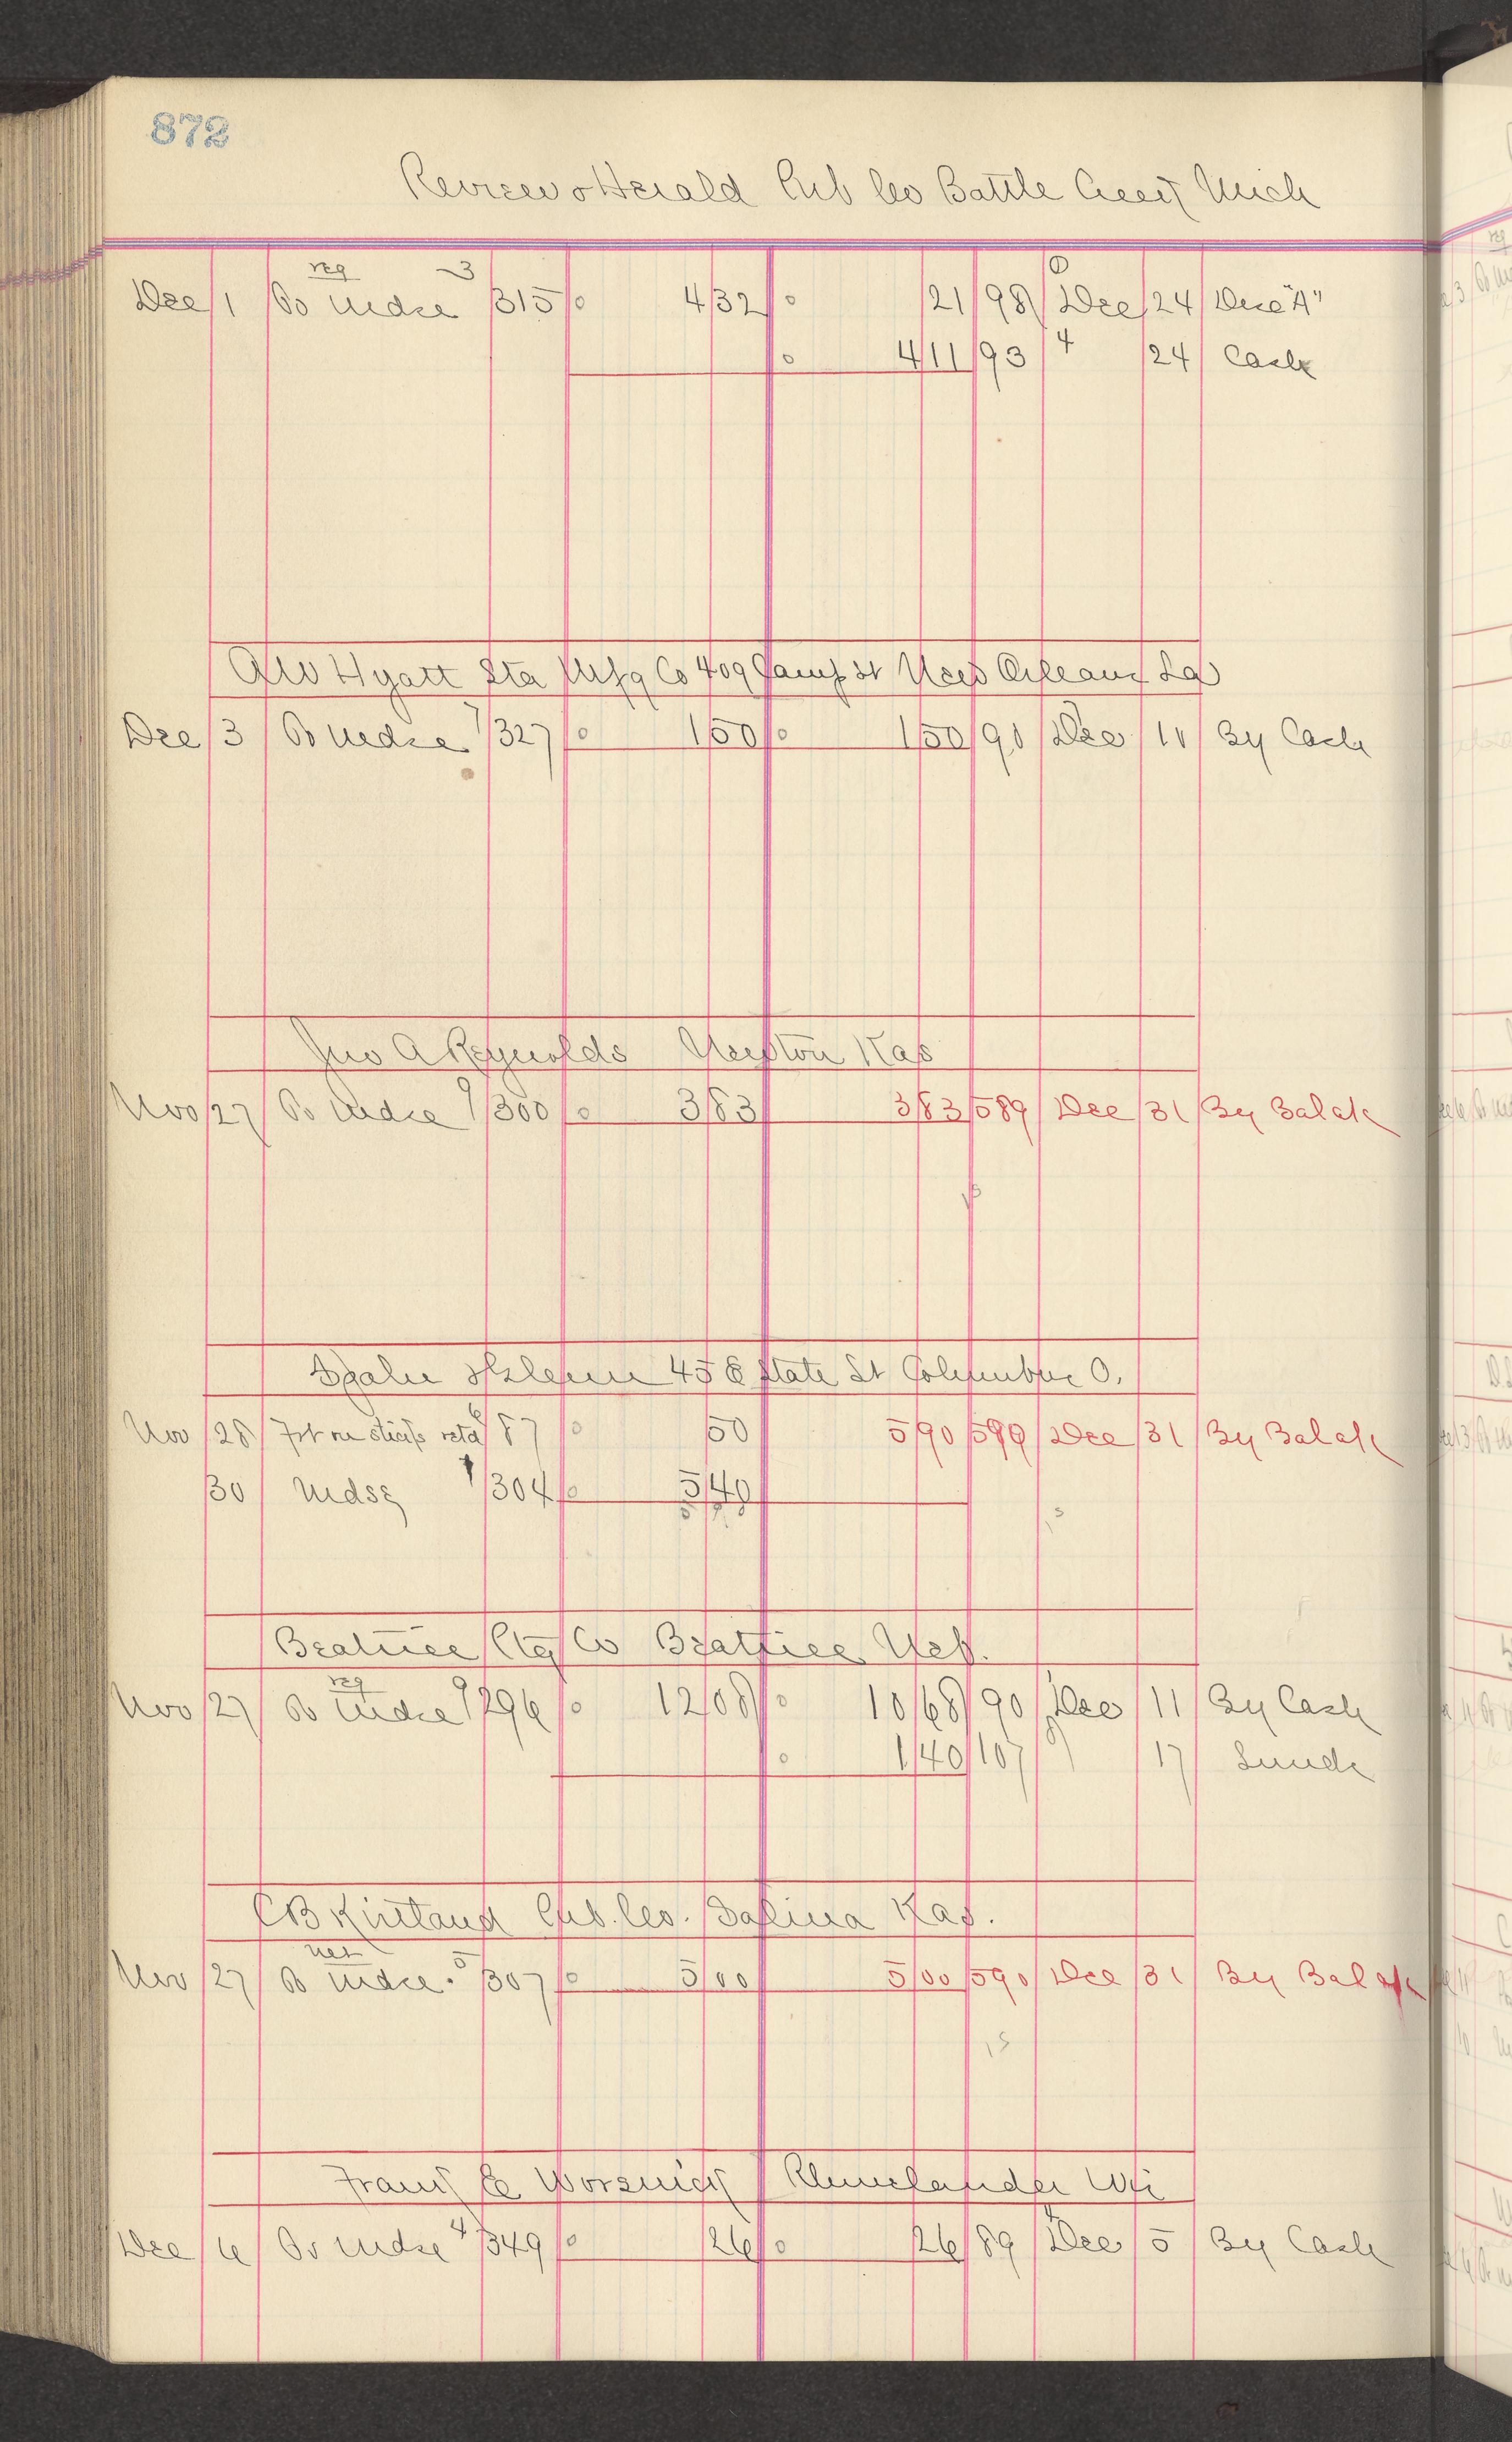 872
Review & Herald Pub Co Battle Creek Mich
reg 3
Dec 1 To Mdse 315 0 4 32 0 21 98 Dec 24 Dise "A"
0 4 11 93 4 24 Cash
AW Hyatt Sta Mfg Co 409 Camp St New Orleans La
Dec 3 To Mdse 7 327 0 1 50 0 1 50 90 Dec 11 By Cash
Jno A Reynolds Newton Kas
Nov 27 To Mdse 9 300 0 3 83 3 83 589 Dec 31 By Balak
45 E State St Columbus O.
Nov 28 Frt on retd 6 87 0 50 5 90 590 Dec 31 By Balak
30 Mdse 1 304 0 5 40
5 90
Beatrice Ctg Co Beatrice Neb.
reg
Nov 27 To Mdse 9 296 0 12 08 0 10 68 90 Dec 11 By Cash
0 1 40 107 17 Sunds
CB Kirtland Pub. Co. Salina Kas.
net
Nov 27 To Mdse. 5 307 0 5 00 5 00 590 Dec 31 By Balak
Frank E Rhinelander Wis
Dec 6 To Mdse 4 349 0 26 0 26 89 Dec 5 By Cash